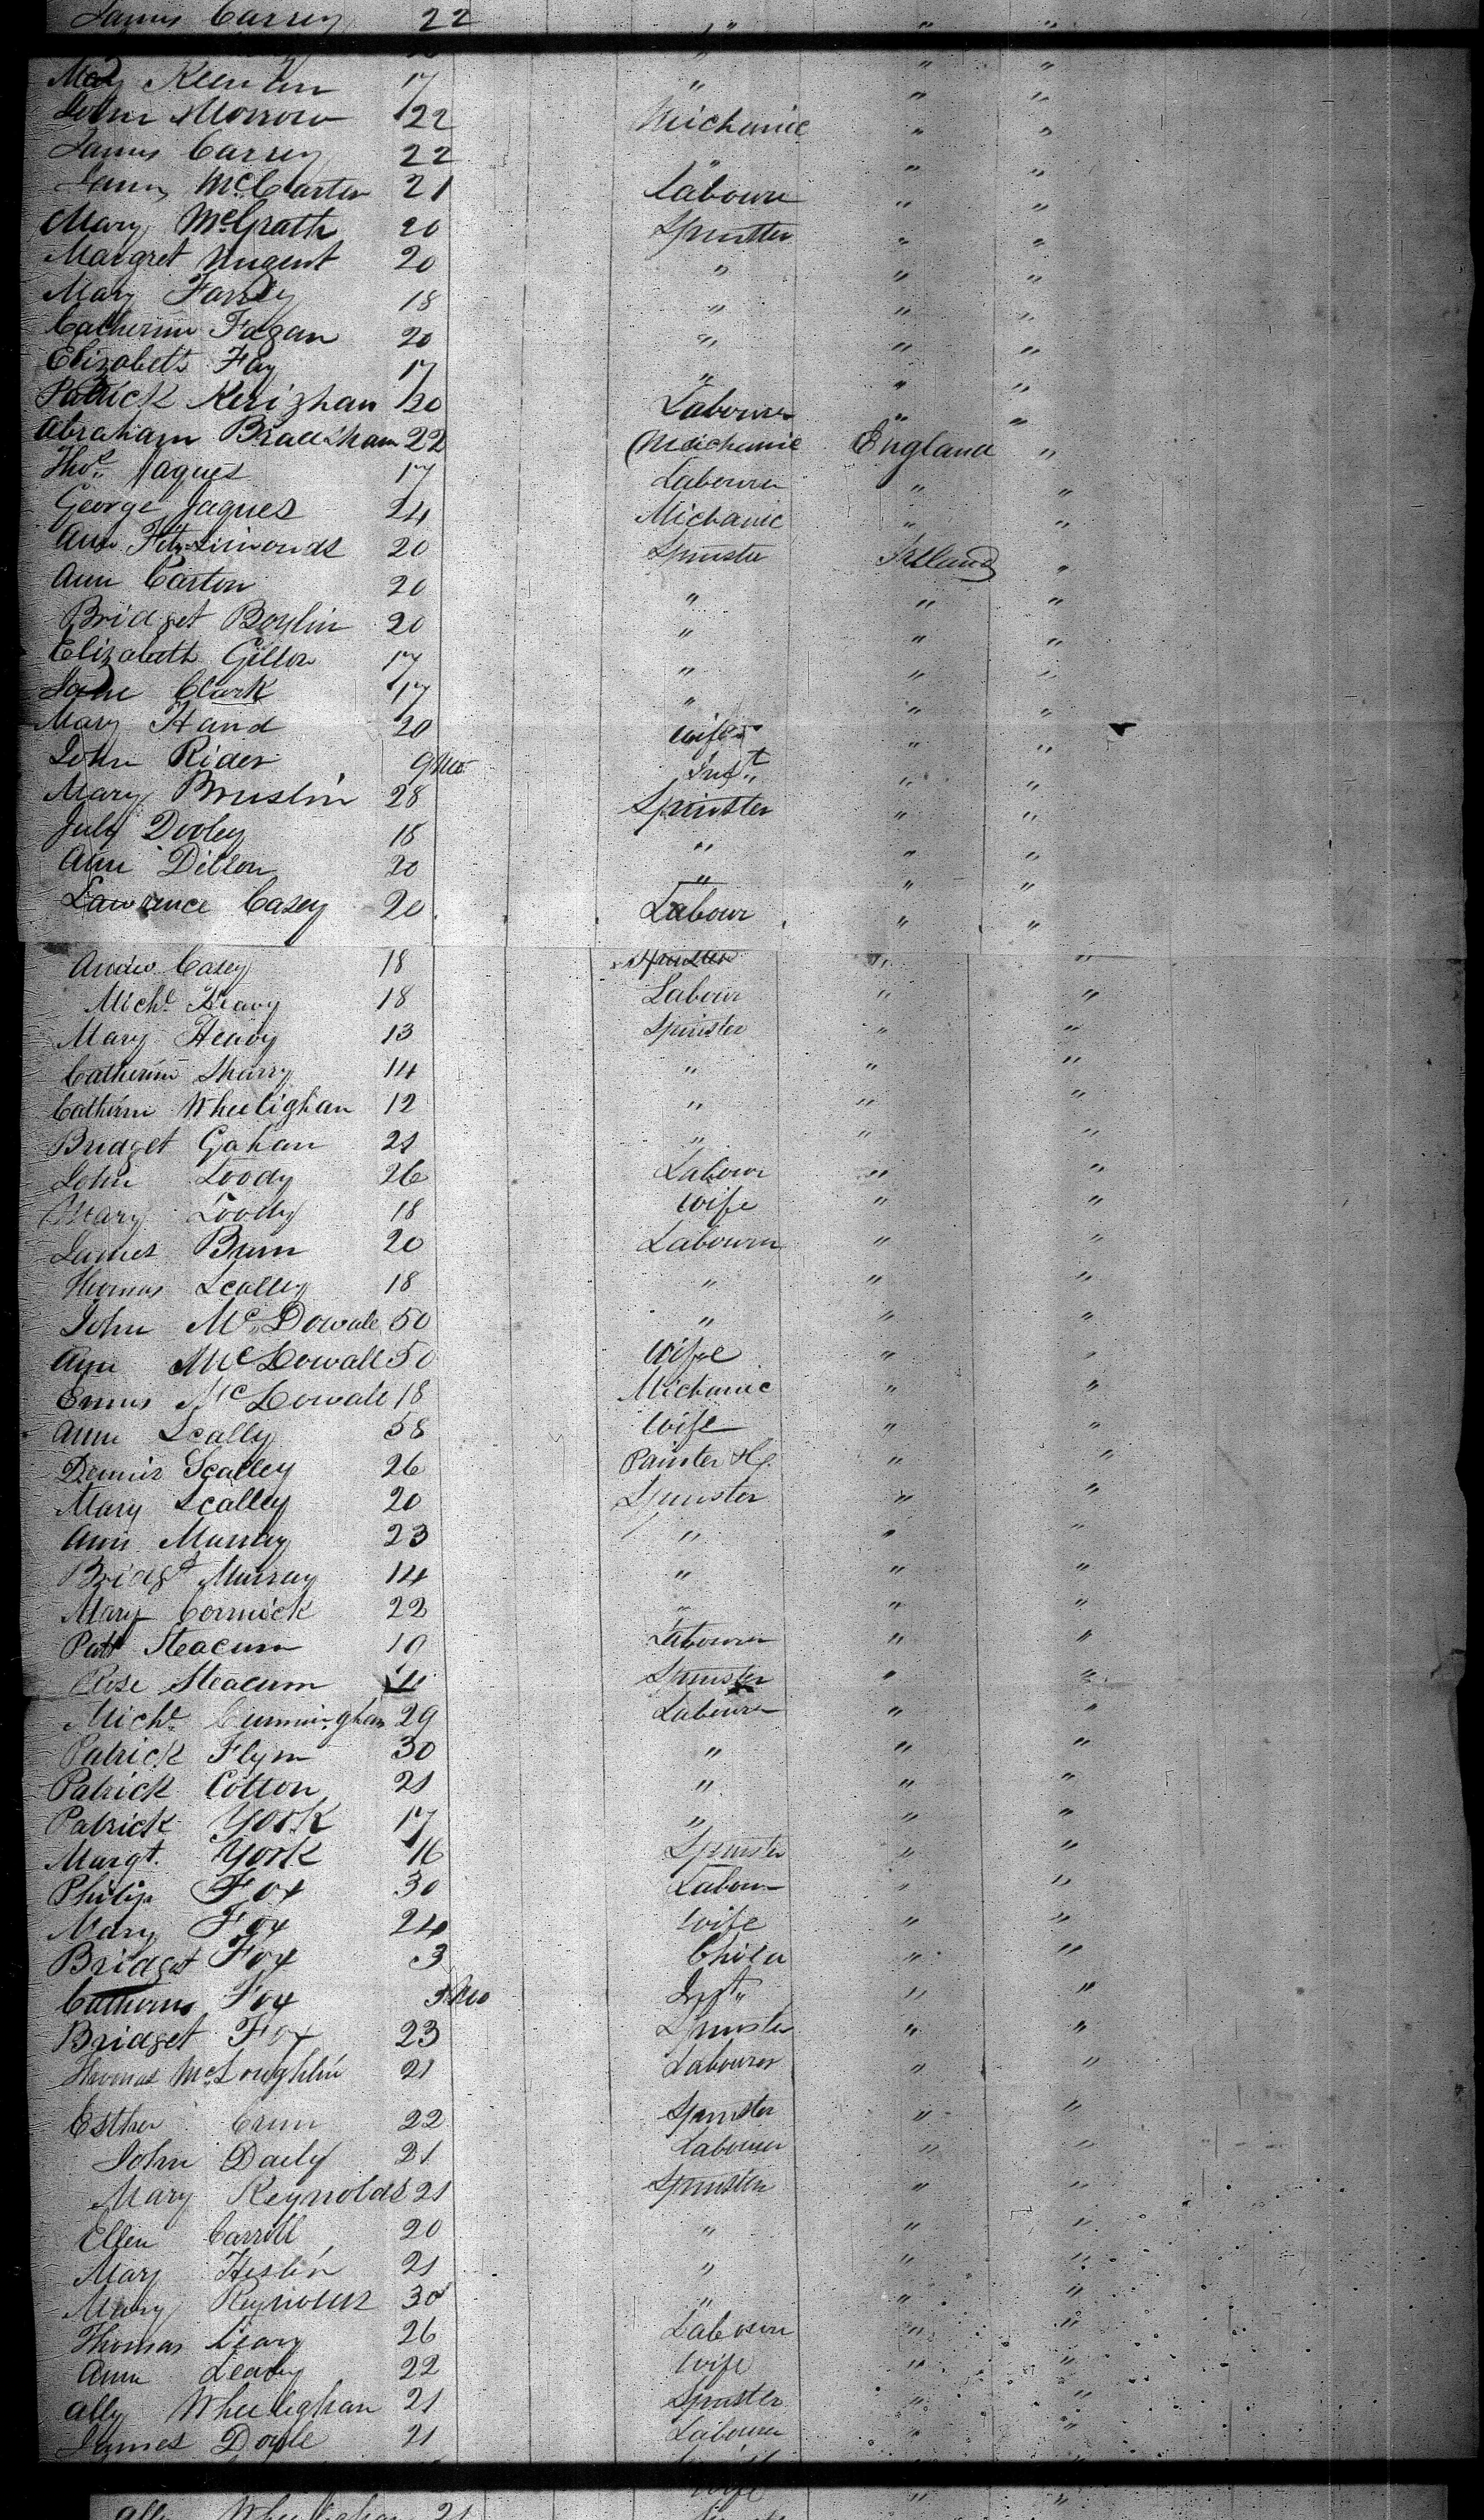 James Carrey 22 " " "
Mary 17 " " "
John Morrow 22 Michanic " "
James Carrey 22 " " "
James McCarter 21 Laboure " "
Mary McGrath 20 Spinster " "
Margret Nugent 20 " " "
Mary Farrey 18 " " "
Catherine Fagan 20 " " "
Elizabeth Fay 17 " " "
Patrick Kerighan 20 Labourer " "
Abraham Bradshaw 22 Mechanic England "
Thos. Jaques 17 Labourer " "
George Jaques 24 Michanic " "
Ann Fitzsimonds 20 Spinster Ireland "
Ann Carton 20 " " "
Bridget Boylin 20 " " "
Elizabeth Gillon 17 " " "
Jane Clark 17 " " "
Mary Hand 20 Wife " "
John Rider 9 Mo Inft. " "
Mary Bruslin 28 Spinster " "
July Dooley 18 " " "
Ann Dillon 20 " " "
Lawrence Casey 20 Labour " "
Andw Casey 18 Spinster " "
Michl. Heavy 18 Labour " "
Mary Heavy 13 Spinster " "
Catherine Sharry 14 " " "
Catherine Wheelighan 12 " " "
Bridget Gahan 21 " " "
John Loody 26 Labour " "
Mary Loody 18 Wife " "
James 20 Labourer " "
Thomas Scalley 18 " " "
John McDowale 50 " " "
Ann McDowall 50 Wife " "
McDowale 18 Michanic " "
Ann Scally 58 Wife " "
Dennis Scalley 26 Painter " "
Mary Scalley 20 Spinster " "
Ann Murray 23 " " "
Bridgt Murray 14 " " "
Mary Cormick 22 " " "
Patt Steacum 19 Labourer " "
Rose Steacum 11 Spinster " "
Michl. Cunningham 29 Labourer " "
Patrick Flynn 30 " " "
Patrick Cotton 21 " " "
Patrick York 17 " " "
Margt. York 16 Spinster " "
Philip Fox 30 Labour " "
Mary Fox 24 Wife " "
Bridget Fox 3 Child " "
Catherine Fox Mo Inft. " "
Bridget Fox 23 Spinster " "
Thomas McLoughlin 21 Labourer " "
Esther 22 Spinster " "
John Daily 21 Labourer " "
Mary Reynolds 21 Spinster " "
Ellen Carroll 20 " " "
Mary Heslin 21 " " "
Mary Reynolds 30 " " "
Thomas Leary 26 Labourer " "
Ann Leary 22 Wife " "
Ally Wheelighan 21 Spinster " "
James Doyle 21 Labourer " "
Wife
Ally Wheelighan 21 " "